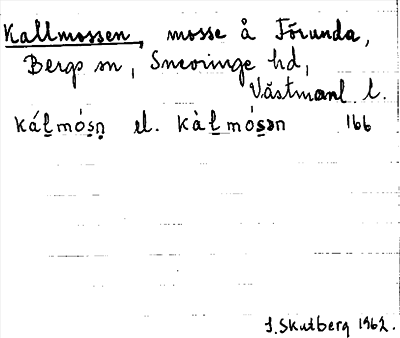 Kallmossen, mosse å Förunda,
Bergs sn, Snevringe hd,
Västmanl. l.
kál̲mós̲n̥ el. kàl̲mós̲ən 166
J. Skutberg 1962.